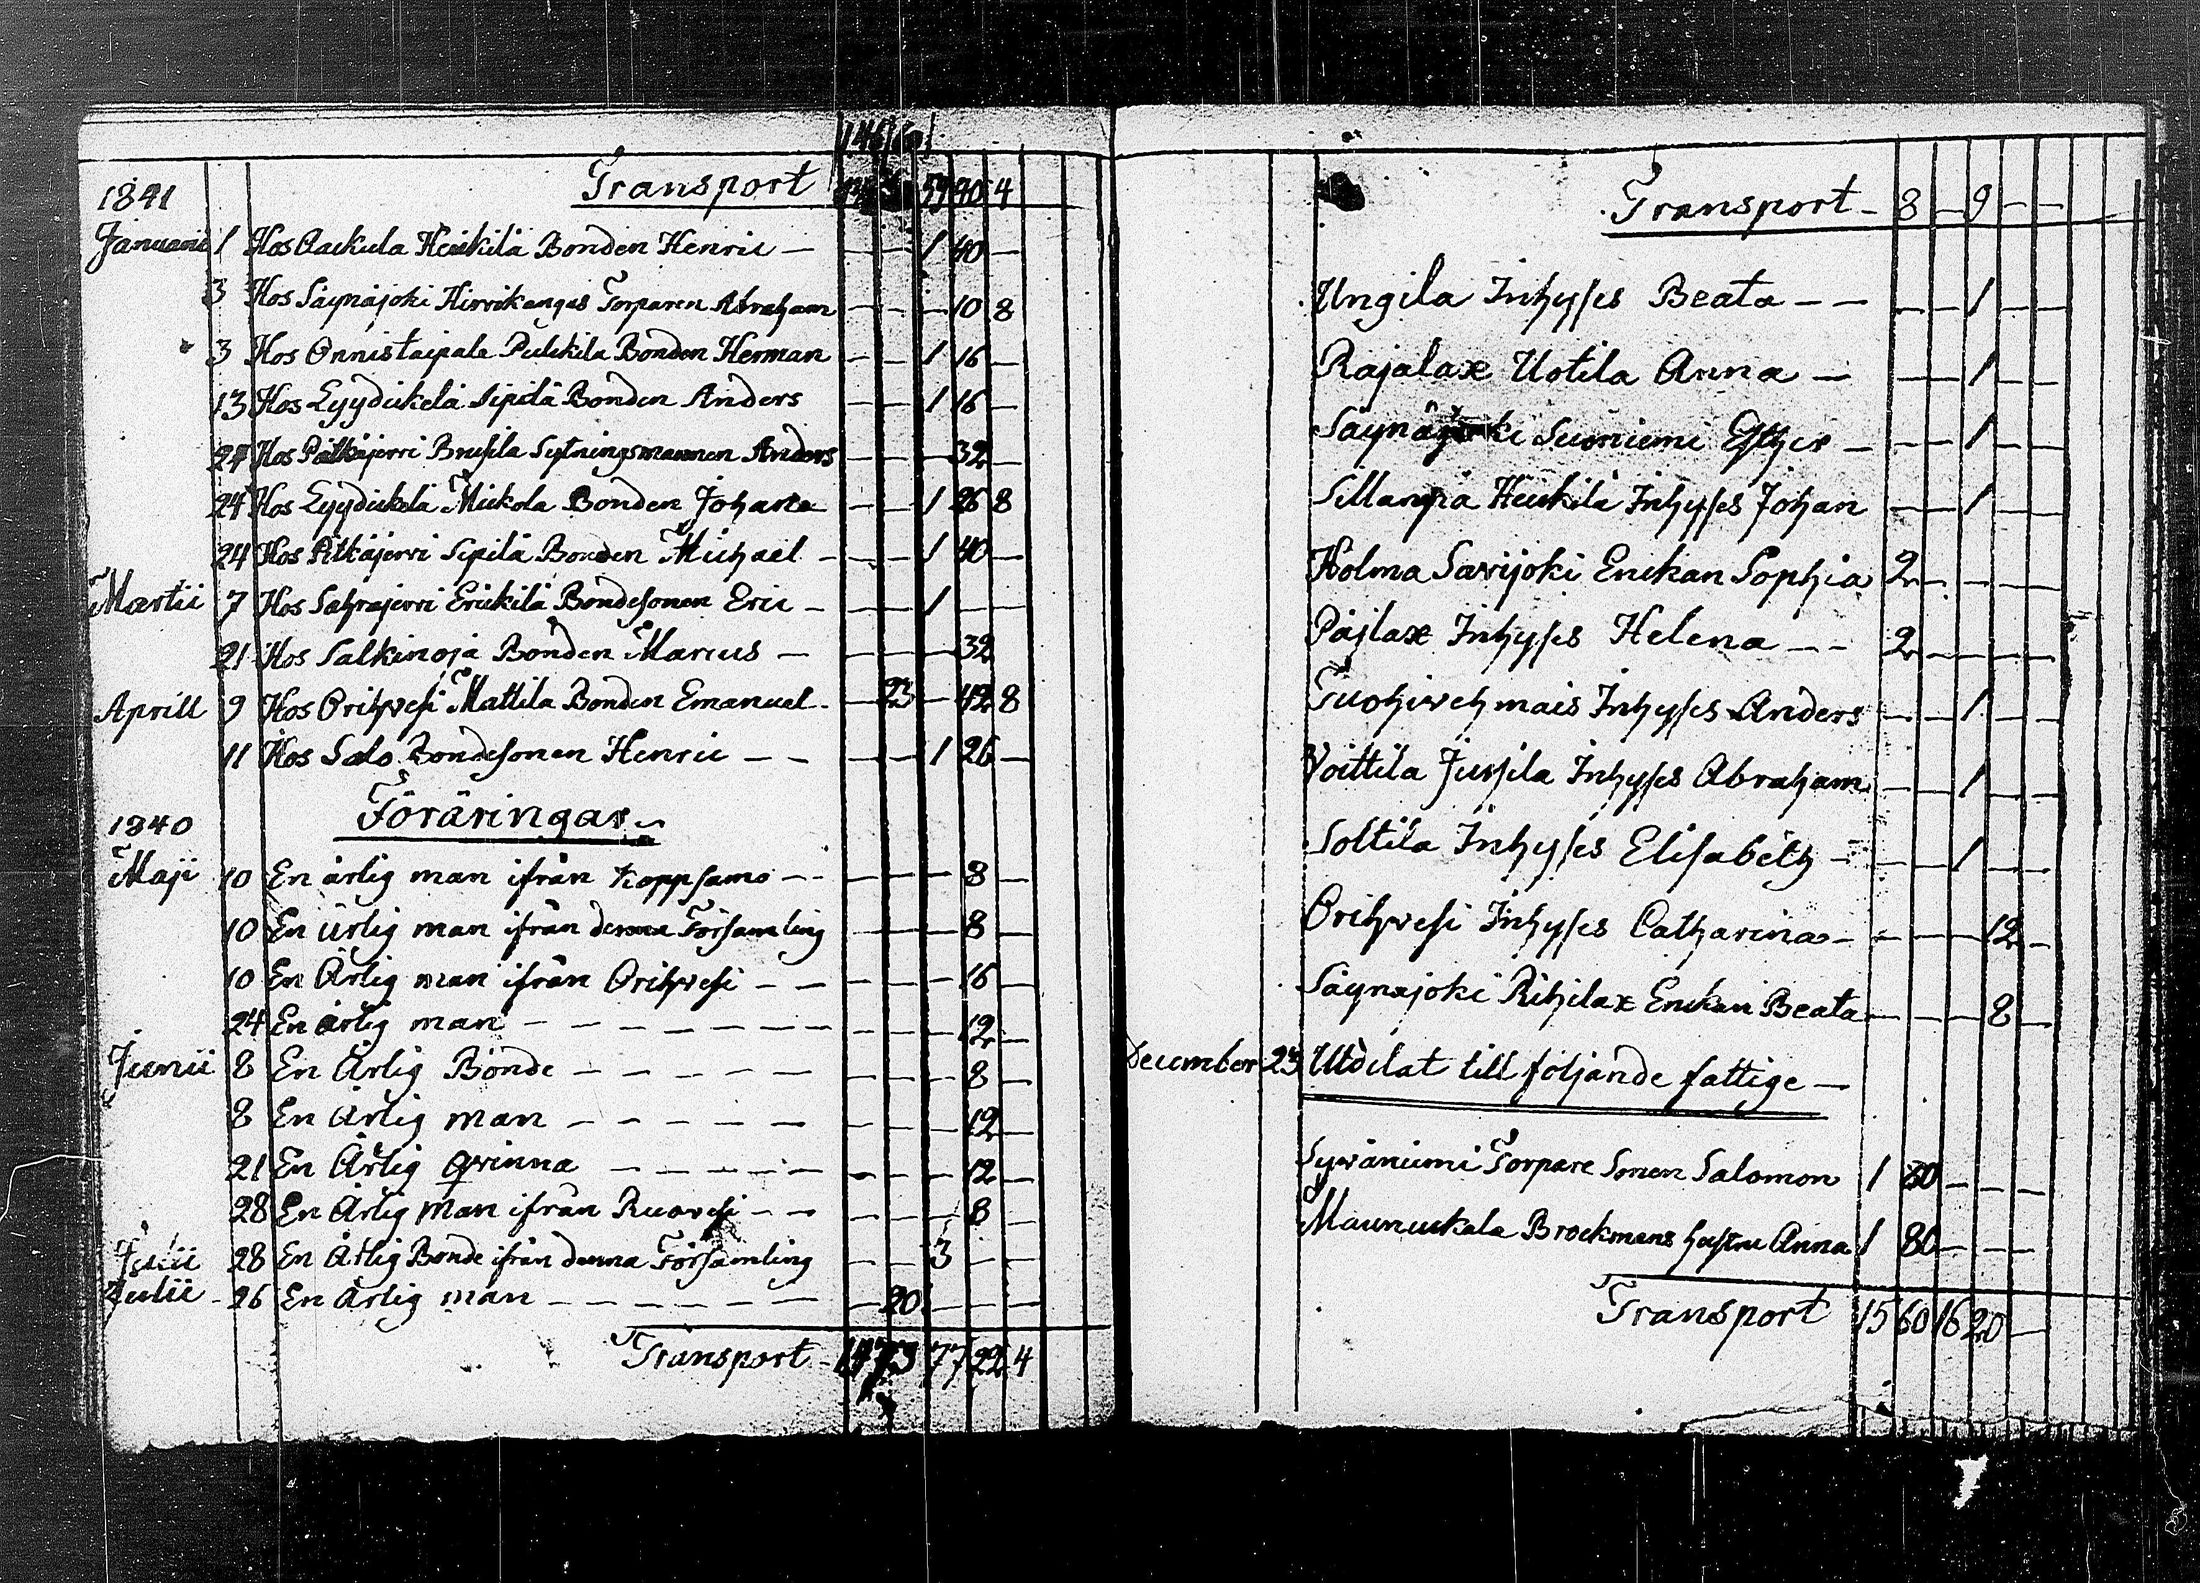 146
Transport 59 40 4
1841
Januarii 1 Hos Packula Heikkilä Bonden Henric — — — 1 40 —
3 Hos Säynäjoki Hirvikangas Torparen Abraham — — — 10 8
3 Hos Onnistaipale Pulckila Bonden Herman — — 1 16 —
13 Hos Lyydickelä Sipilä Bonden Anders — — 1 16 —
24 Hos Pitkäjervi Brusila Sytningsmannen Anders — — — 32 —
24 Hos Lyydickelä Mickola Bonden Johan — — 1 26 8
24 Hos Pitkäjervi Sipilä Bonden Michael — — — 1 40 —
Martii 7 Hos Sahrajervi Erickilä Bondesonen Eric — — — 1 — —
21 Hos Salkinoja Bonden Marcus — — — — 32
Aprill 9 Hos Orihvesi Mattila Bonden Emanuel — — 23 — 42 8
11 Hos Salo Bondesonen Henric — — — — 1 26 —
Föräringar
1840
Maji 10 En ärlig man ifrån Koppsamo — — — — — 8 —
10 En ärlig man ifrån denna Församling — — — 8 —
10 En Ärlig man ifrån Orihvesi — — — — — 16 —
24 En ärlig man — — — — — — — — — — 12 —
Junii 8 En Ärlig Bonde — — — — — — — — 8 —
8 En Ärlig man — — — — — — — — 12 —
21 En Ärlig qvinna — — — — — — — — 12 —
28 En Ärlig Man ifrån Ruovesi — — — — — 8 —
28 En Ärlig Bonde ifrån denna Församling — — 3 — —
Julii 26 En Ärlig man — — — — — — — 20 — — —
Transport 77 22 4
Transport — 8 — 9 — —
Ungila Inhyses Beata — — — — 1 — —
Rajalax Uotila Anna — — — 1 — —
Säynäjoki Suiniemi Esther — — — 1 — —
Sillanpiä Heickilä Inhyses Johan — — 1 — —
Holma Savijoki Enckan Sophia 2 — — — —
Päjlax Inhyses Helena — — 2 — — — —
Tuohivehmais Inhyses Anders — — 1 — —
Voittila Jussila Inhyses Abraham — — 1 — —
Soltila Inhyses Elisabeth — — — 1 — —
Orihvesi Inhyses Catharina — — — — 12 —
Säynäjoki Rihilax Enckan Beata — — — 8 —
December 23 Utdelat till följande fattige —
Syväniemi Torpare Sonen Salomon 1 80 — — —
Maunuckala Brockmans hustru Anna 1 80 — — —
Transport 15 60 16 20 —